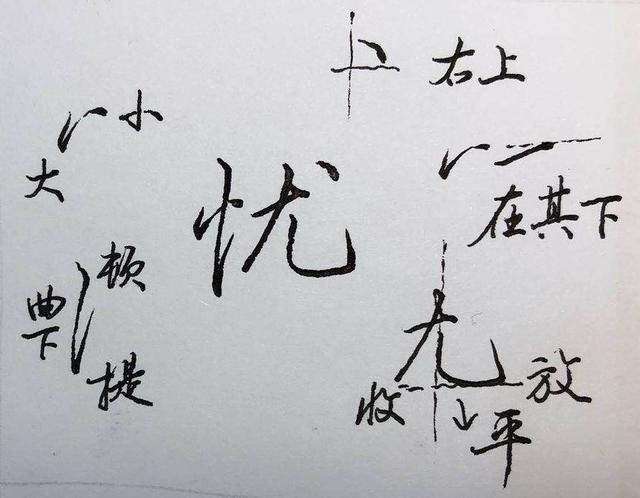 右上
小
大
忧
在其下
顿
曲下
提
尤
收
平
放